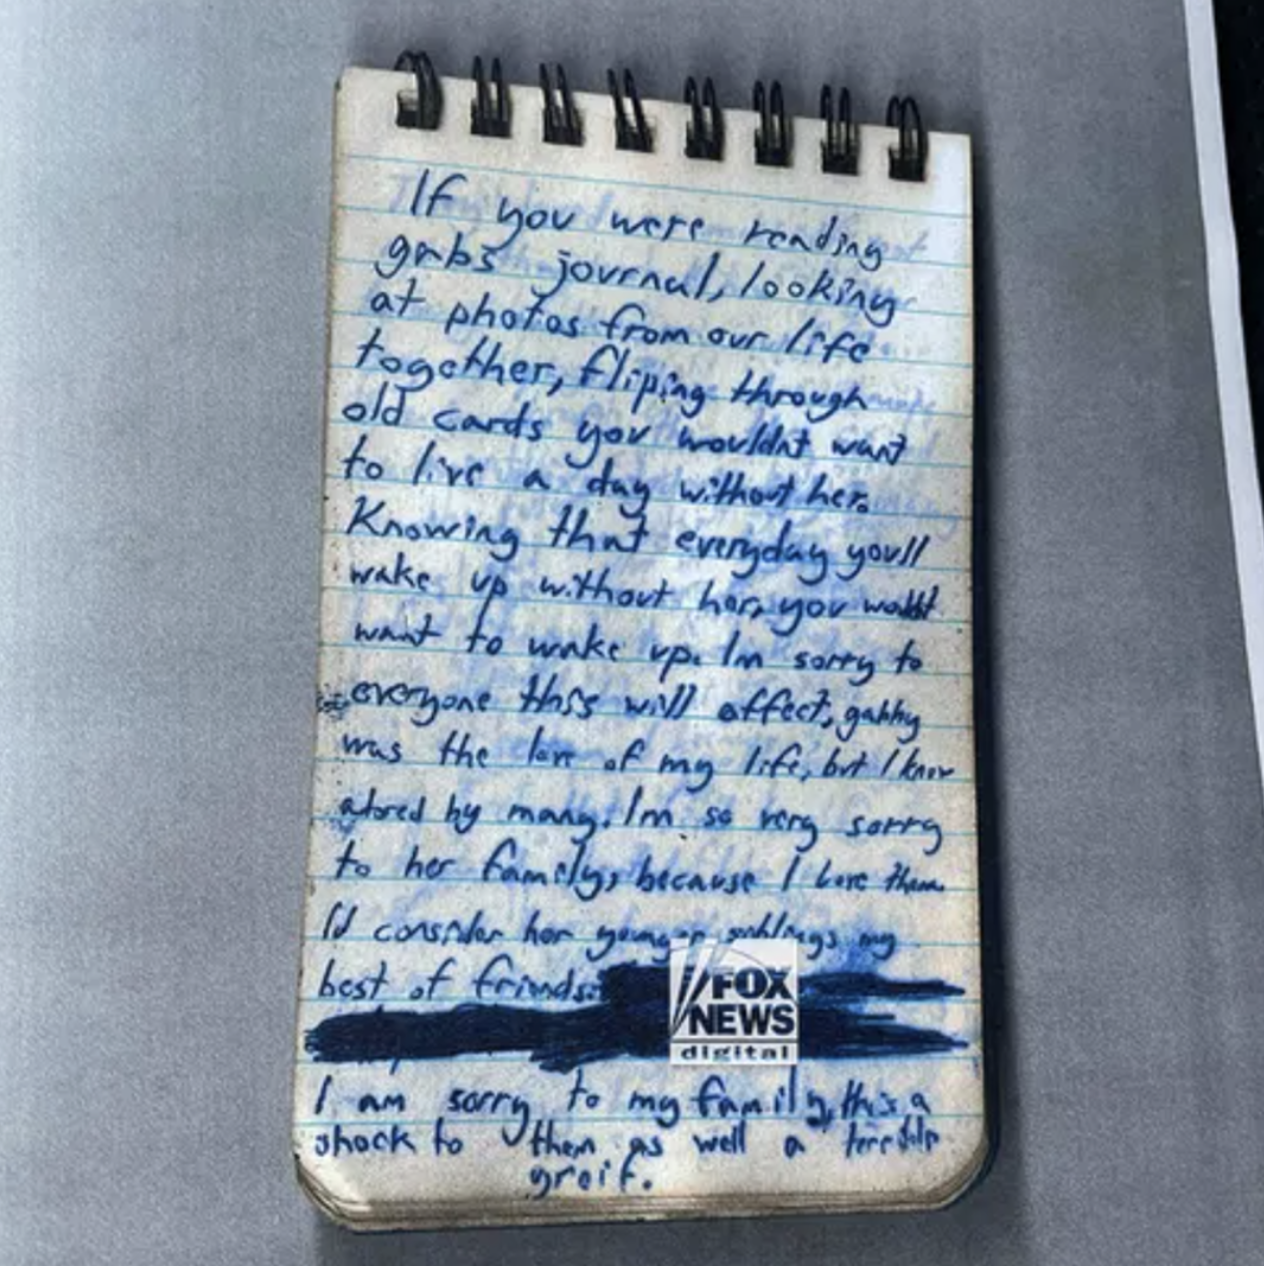 If you were reading
gabs journal, looking
at photos from our life
together, fliping through
old cards you wouldnt want
to live a day without her.
Knowing that everyday youll
wake up without her, you wouldnt
want to wake up. Im sorry to
everyone this will affect, gabby
was the love of my life, but I know
adored by many. Im so very sorry
to her family, because I love them.
Id consider her younger siblings my
best of friends.
FOX
NEWS
digital
I am sorry to my family, this a
shock to them as well a terrible
greif.